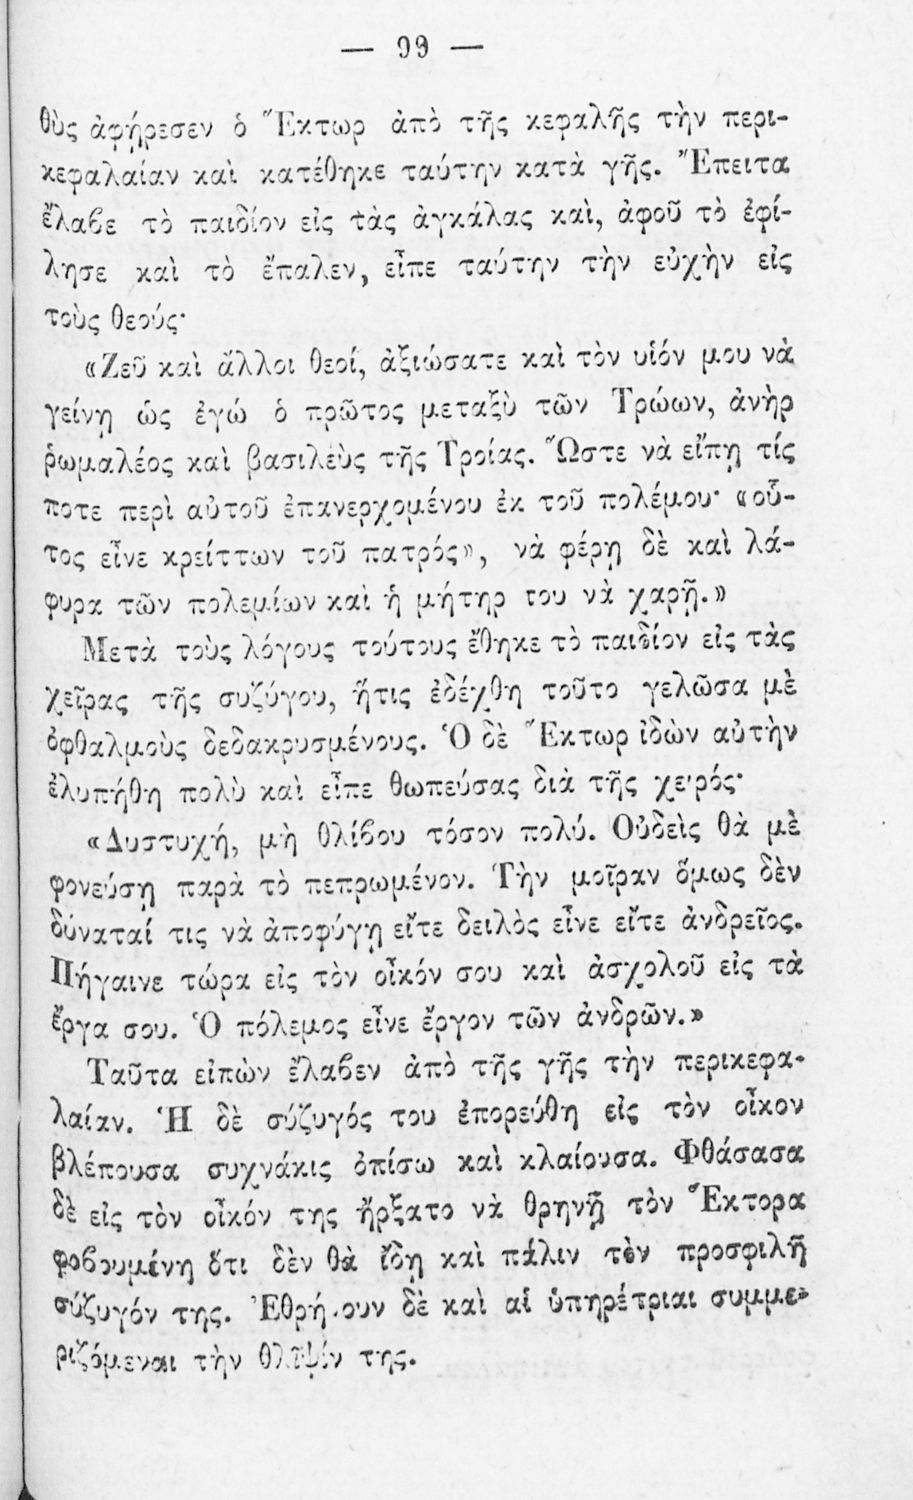 — 99 —
θὺς ἀφῄρεσεν ὁ Ἕκτωρ ἀπὸ τῆς κεφαλῆς τὴν περι-
κεφαλαίαν καὶ κατέθηκε ταύτην κατὰ γῆς. Ἔπειτα
ἔλαβε τὸ παιδίον εἰς τὰς ἀγκάλας καὶ, ἀφοῦ τὸ ἐφί-
λησε καὶ τὸ ἔπαλεν, εἶπε ταύτην τὴν εὐχὴν εἰς
τοὺς θεούς·
«Ζεῦ καὶ ἄλλοι θεοί, ἀξιώσατε καὶ τὸν υἱόν μου νὰ
γείνῃ ὡς ἐγώ ὁ πρῶτος μεταξὺ τῶν Τρώων, ἀνὴρ
ῥωμαλέος καὶ βασιλεὺς τῆς Τροίας. Ὥστε νὰ εἴπῃ τίς
ποτε περὶ αὐτοῦ ἐπανερχομένου ἐκ τοῦ πολέμου· «οὗ-
τος εἶνε κρείττων τοῦ πατρός», νὰ φέρῃ δὲ καὶ λά-
φυρα τῶν πολεμίων και ἡ μήτηρ του νὰ χαρῇ.»
Μετὰ τοὺς λόγους τούτους ἔθηκε τὸ παιδίον εἰς τὰς
χεῖρας τῆς συζύγου, ἥτις ἐδέχθη τοῦτο γελῶσα μὲ
ὀφθαλμοὺς δεδακρυσμένους. Ὁ δὲ Ἕκτωρ ἰδὼν αὐτὴν
ἐλυπήθη πολὺ καὶ εἶπε θωπεύσας διὰ τῆς χειρός·
«Δυστυχή, μὴ θλίβου τόσον πολύ. Οὐδεὶς θὰ μὲ
φονεύσῃ παρὰ τὸ πεπρωμένον. Τὴν μοῖραν ὅμως δὲν
δύναταί τις νὰ ἀποφύγῃ εἴτε δειλὸς εἶνε εἴτε ἀνδρεῖος.
Πήγαινε τώρα εἰς τὸν οἶκόν σου καὶ ἀσχολοῦ εἰς τὰ
ἔργα σου. Ὁ πόλεμος εἶνε ἔργον τῶν ἀνδρῶν.»
Ταῦτα εἰπὼν ἔλαβεν ἀπὸ τῆς γῆς τὴν περικεφα-
λαίαν. Ἡ δὲ σύζυγός του ἐπορεύθη εἰς τὸν οἶκον
βλέπουσα συχνάκις ὀπίσω καὶ κλαίουσα. Φθάσασα
δὲ εἰς τὸν οἶκόν της ἤρξατο νὰ θρηνῇ τὸν Ἕκτορα
φοβουμένη ὅτι δὲν θὰ ἴδῃ καὶ πάλιν τὸν προσφιλῆ
σύζυγόν της. Ἐθρή.ουν δὲ καὶ αἱ ὑπηρέτριαι συμμε-
ριζόμεναι τὴν θλῖψίν της.